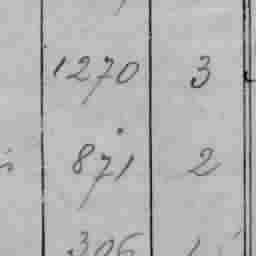 1270 3
871 2
306